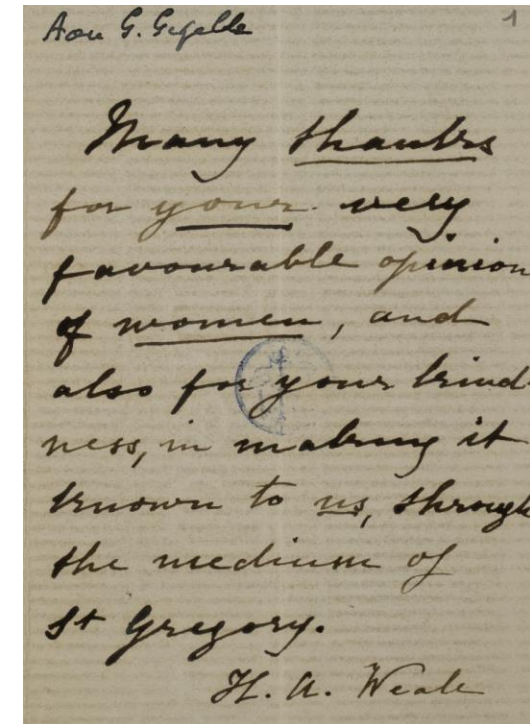 Aan G. Gezelle
1
Many thanks
for your very
favourable opinion
of women, and
also for your kind
ness, in making it
known to us, through
the medium of
St Gregory.
H. A. Weale